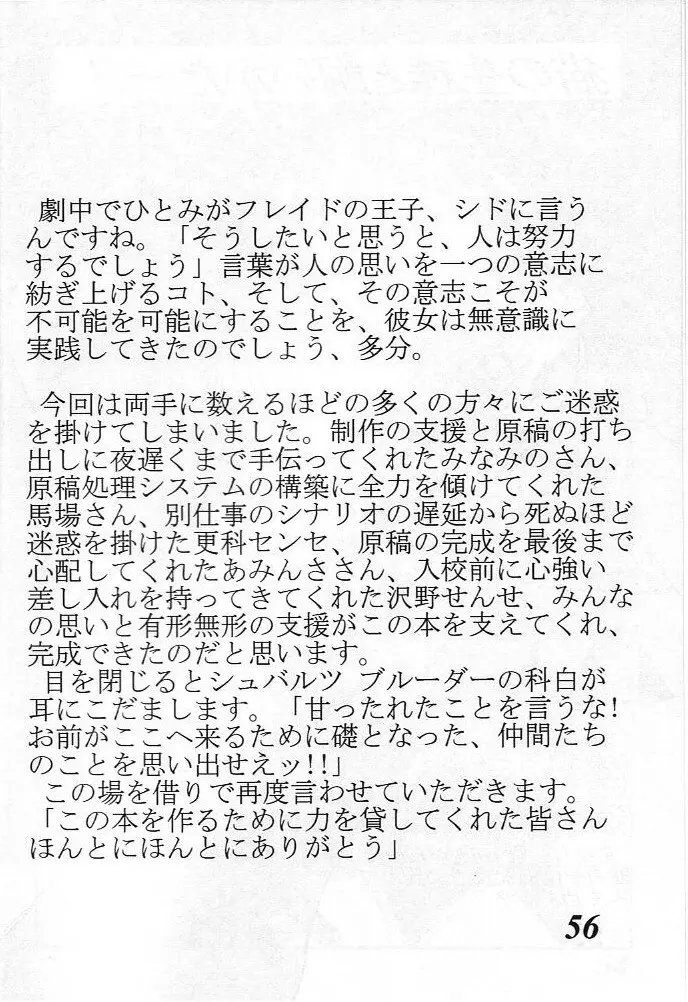 劇中でひとみがフレイドの王子、シドに言う
んですね。「そうしたいと思うと、人は努力
するでしょう」言葉が人の思いを一つの意志に
紡ぎ上げるコト、そして、その意志こそが
不可能を可能にすることを、彼女は無意識に
実践してきたのでしょう、多分。
今回は両手に数えるほどの多くの方々にご迷惑
を掛けてしまいました。制作の支援と原稿の打ち
出しに夜遅くまで手伝ってくれたみなみのさん、
原稿処理システムの構築に全力を傾けてくれた
馬場さん、別仕事のシナリオの遅延から死ぬほど
迷惑を掛けた更科センセ、原稿の完成を最後まで
心配してくれたあみんささん、入校前に心強い
差し入れを持ってきてくれた沢野せんせ、みんな
の思いと有形無形の支援がこの本を支えてくれ、
完成できたのだと思います。
目を閉じるとシュバルツ ブルーダーの科白が
耳にこだまします。「甘ったれたことを言うな!
お前がここへ来るために礎となった、仲間たち
のことを思い出せえッ!!」
この場を借りで再度言わせていただきます。
「この本を作るために力を貸してくれた皆さん
ほんとにほんとにありがとう」
56